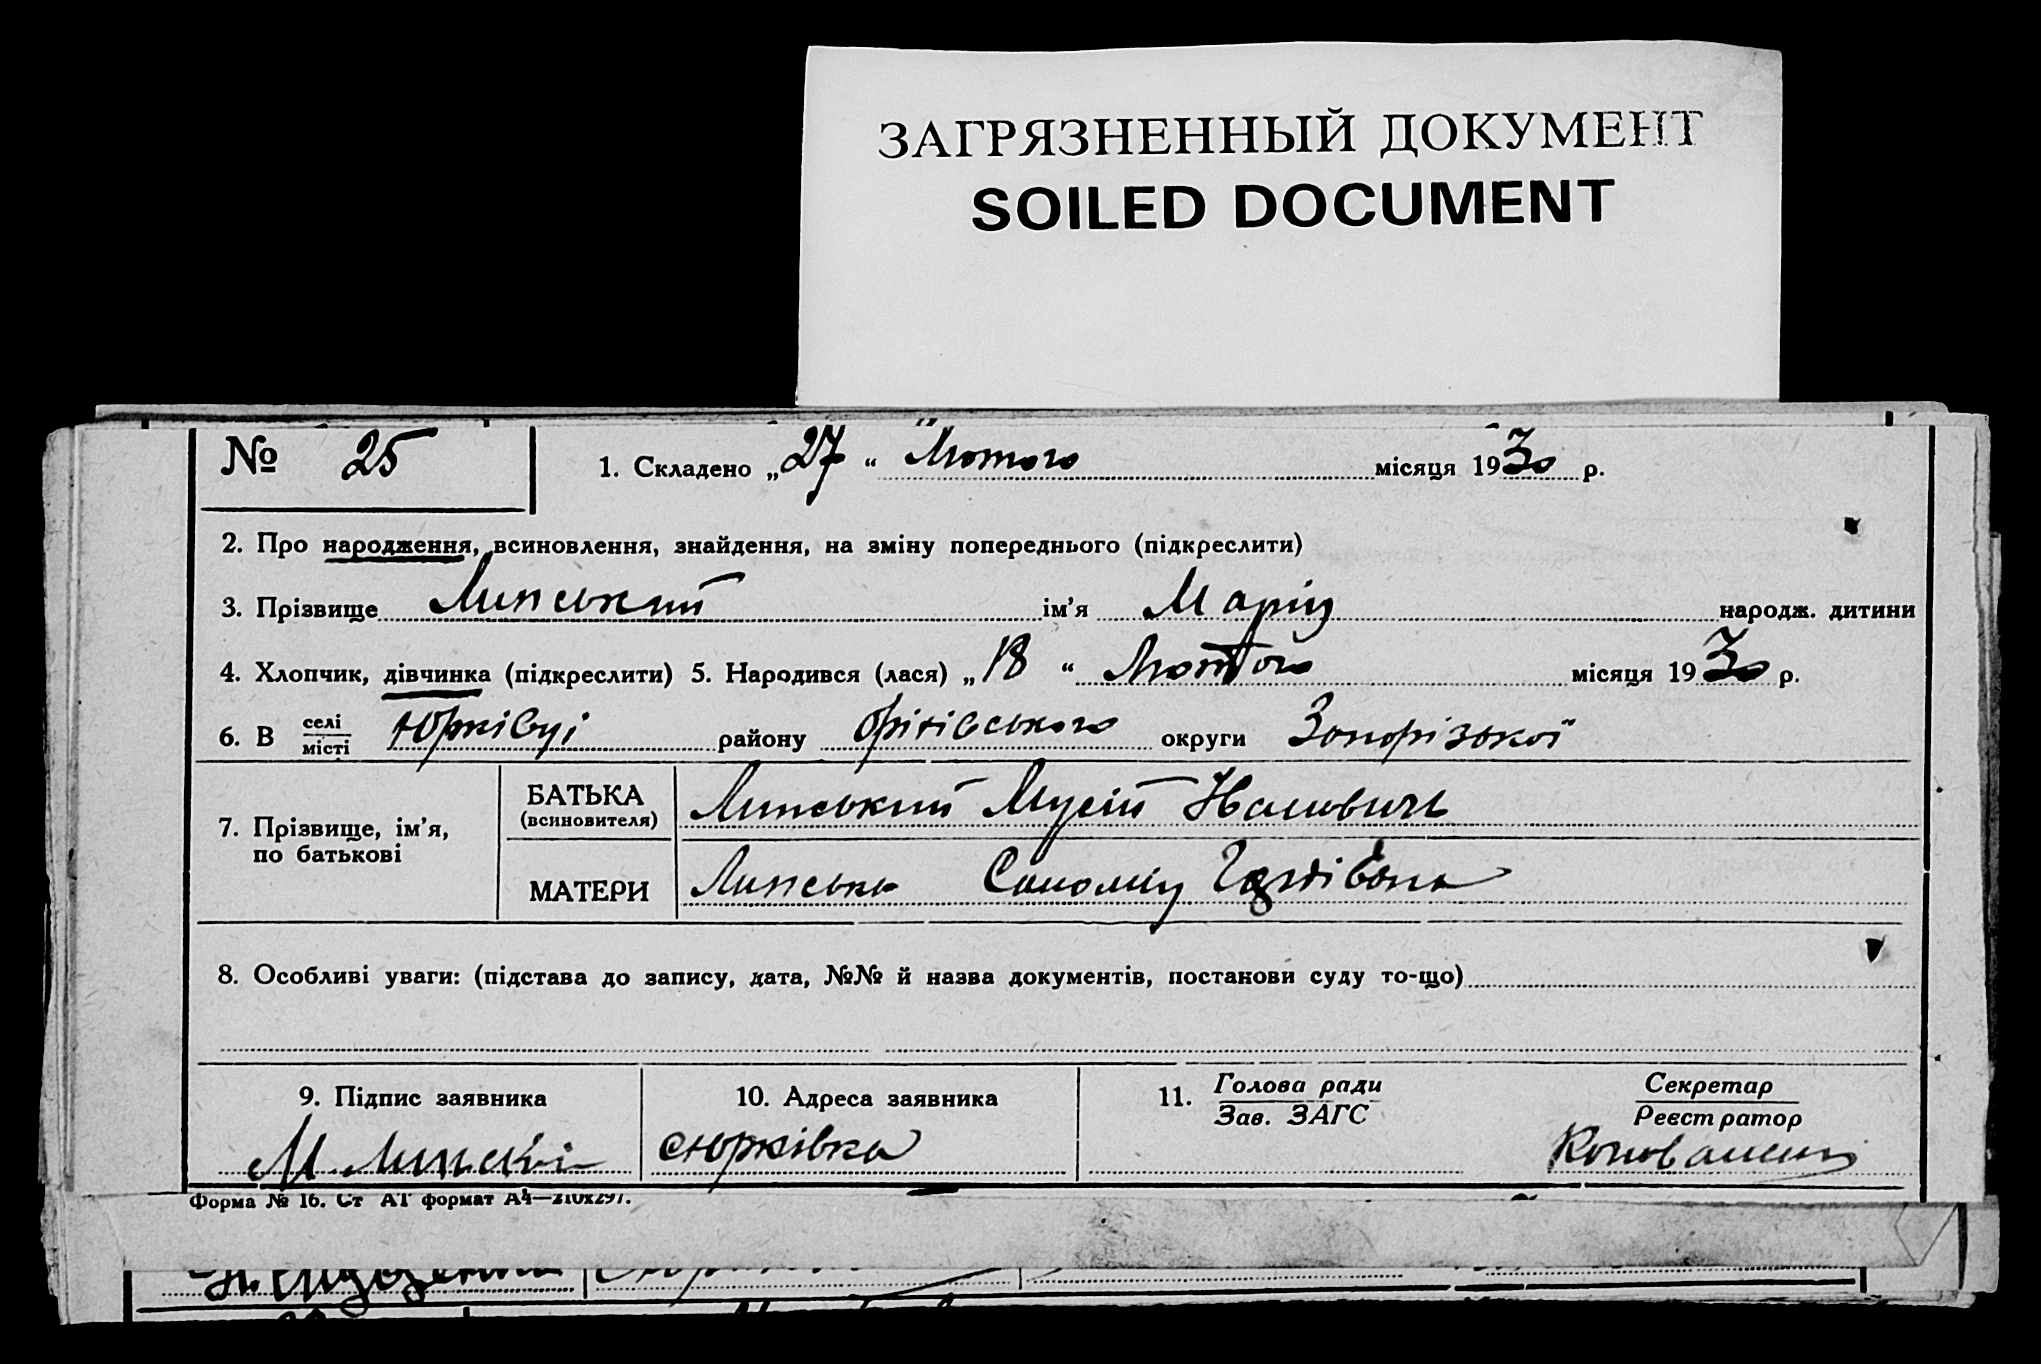 ЗАГРЯЗНЕННЫЙ ДОКУМЕНТ
SOILED DOCUMENT
№ 25
1. Складено „27“ Лютого місяця 1930 р.
2. Про народження, всиновлення, знайдення, на зміну попереднього (підкреслити)
3. Прізвище Липський ім'я Марія народж. дитини
4. Хлопчик, дівчинка (підкреслити) 5. Народився (лася) „18“ Лютого місяця 1930 р.
6. В селі/місті Юрківці району округи Запорізької
7. Прізвище, ім'я, по батькові
БАТЬКА (всиновителя) Липський Мусій
МАТЕРИ Липська
8. Особливі уваги: (підстава до запису, дата, №№ й назва документів, постанови суду то-що)
9. Підпис заявника
10. Адреса заявника
11. Голова ради
Зав. ЗАГС
Секретар
Реєстратор
с Юрківка
Форма № 16. Ст АТ формат А4—210х297.